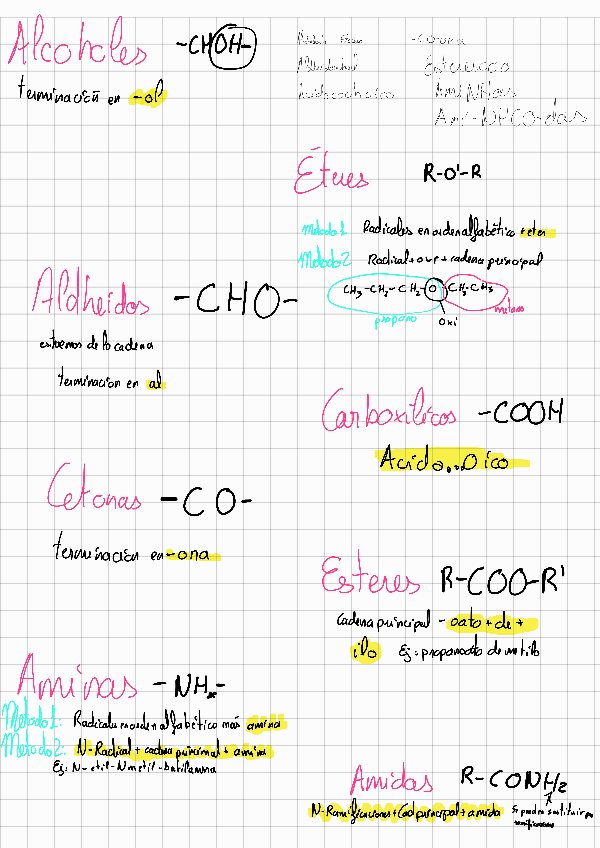 Alcoholes -CHOH-
terminación en -ol
-CO-ona
AmiNHas
Ami-NHCO-das
Éteres R-O-R
Metodo 1 Radicales en orden alfabético + eter
Metodo 2 Radical + oxi + cadena principal
CH3-CH2-CH2-O-CH2-CH3
propano oxi metano
Aldheidos -CHO-
extremos de la cadena
terminacion en al
Carboxílicos -COOH
Acido...Oico
Cetonas -CO-
terminación en -ona
Esteres R-COO-R'
Cadena principal - oato + de +
ilo Ej: propanoato de metilo
Aminas -NHx-
Metodo 1: Radicales en orden alfabético más amina
Metodo 2: N-Radical + cadena principal + amina
Ej: N-etil-Nmetil-butilamina
Amidas R-CONH2
N-Ramificaciones + Cad principal + amida Se puede sustituir por
ramificaciones